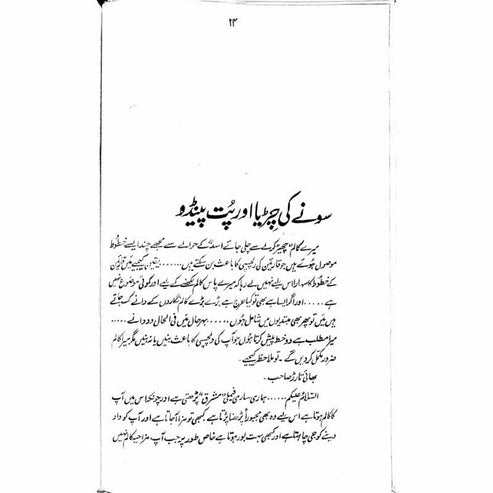 ۲۴
سونے کی چڑیا اور پُت پینڈو
میرے کالم "چھیڑ کر لے سے چلی جائے اسد" کے حوالے سے مجھے چند ایسے خطوط
موصول ہوئے ہیں جو قارئین کی دلچسپی کا باعث بن سکتے ہیں...... یقین کیجیے میں قارئین
کے خطوط کا سہارا اس لیے نہیں لے رہا کہ میرے پاس کالم لکھنے کے لیے اور کوئی موضوع نہیں
ہے..... اور اگر ایسا ہے بھی تو کیا حرج ہے بڑے بڑے کالم نگاروں کے دانے مک جاتے
ہیں میں تو پھر بھی مبتدیوں میں شامل ہوں...... بہرحال میں فی الحال دو دانے.....
میرا مطلب ہے دو خط پیش کرتا ہوں جو آپ کی دلچسپی کا باعث بنیں یا نہ بنیں مگر میرا کالم
ضرور مکمل کر دیں گے۔ تو ملاحظہ کیجیے۔
بھائی تارڑ صاحب۔
السلام علیکم..... ہماری ساری فیملی "مشرق" پڑھتی ہے اور چونکہ اس میں آپ
کا کالم ہوتا ہے اس لیے وہ بھی مجبوراً پڑھنا پڑتا ہے کبھی تو مزا آ جاتا ہے اور آپ کو داد
دینے کو جی چاہتا ہے اور کبھی بہت بور ہوتا ہے خاص طور پہ جب آپ مزاحیہ کالم میں